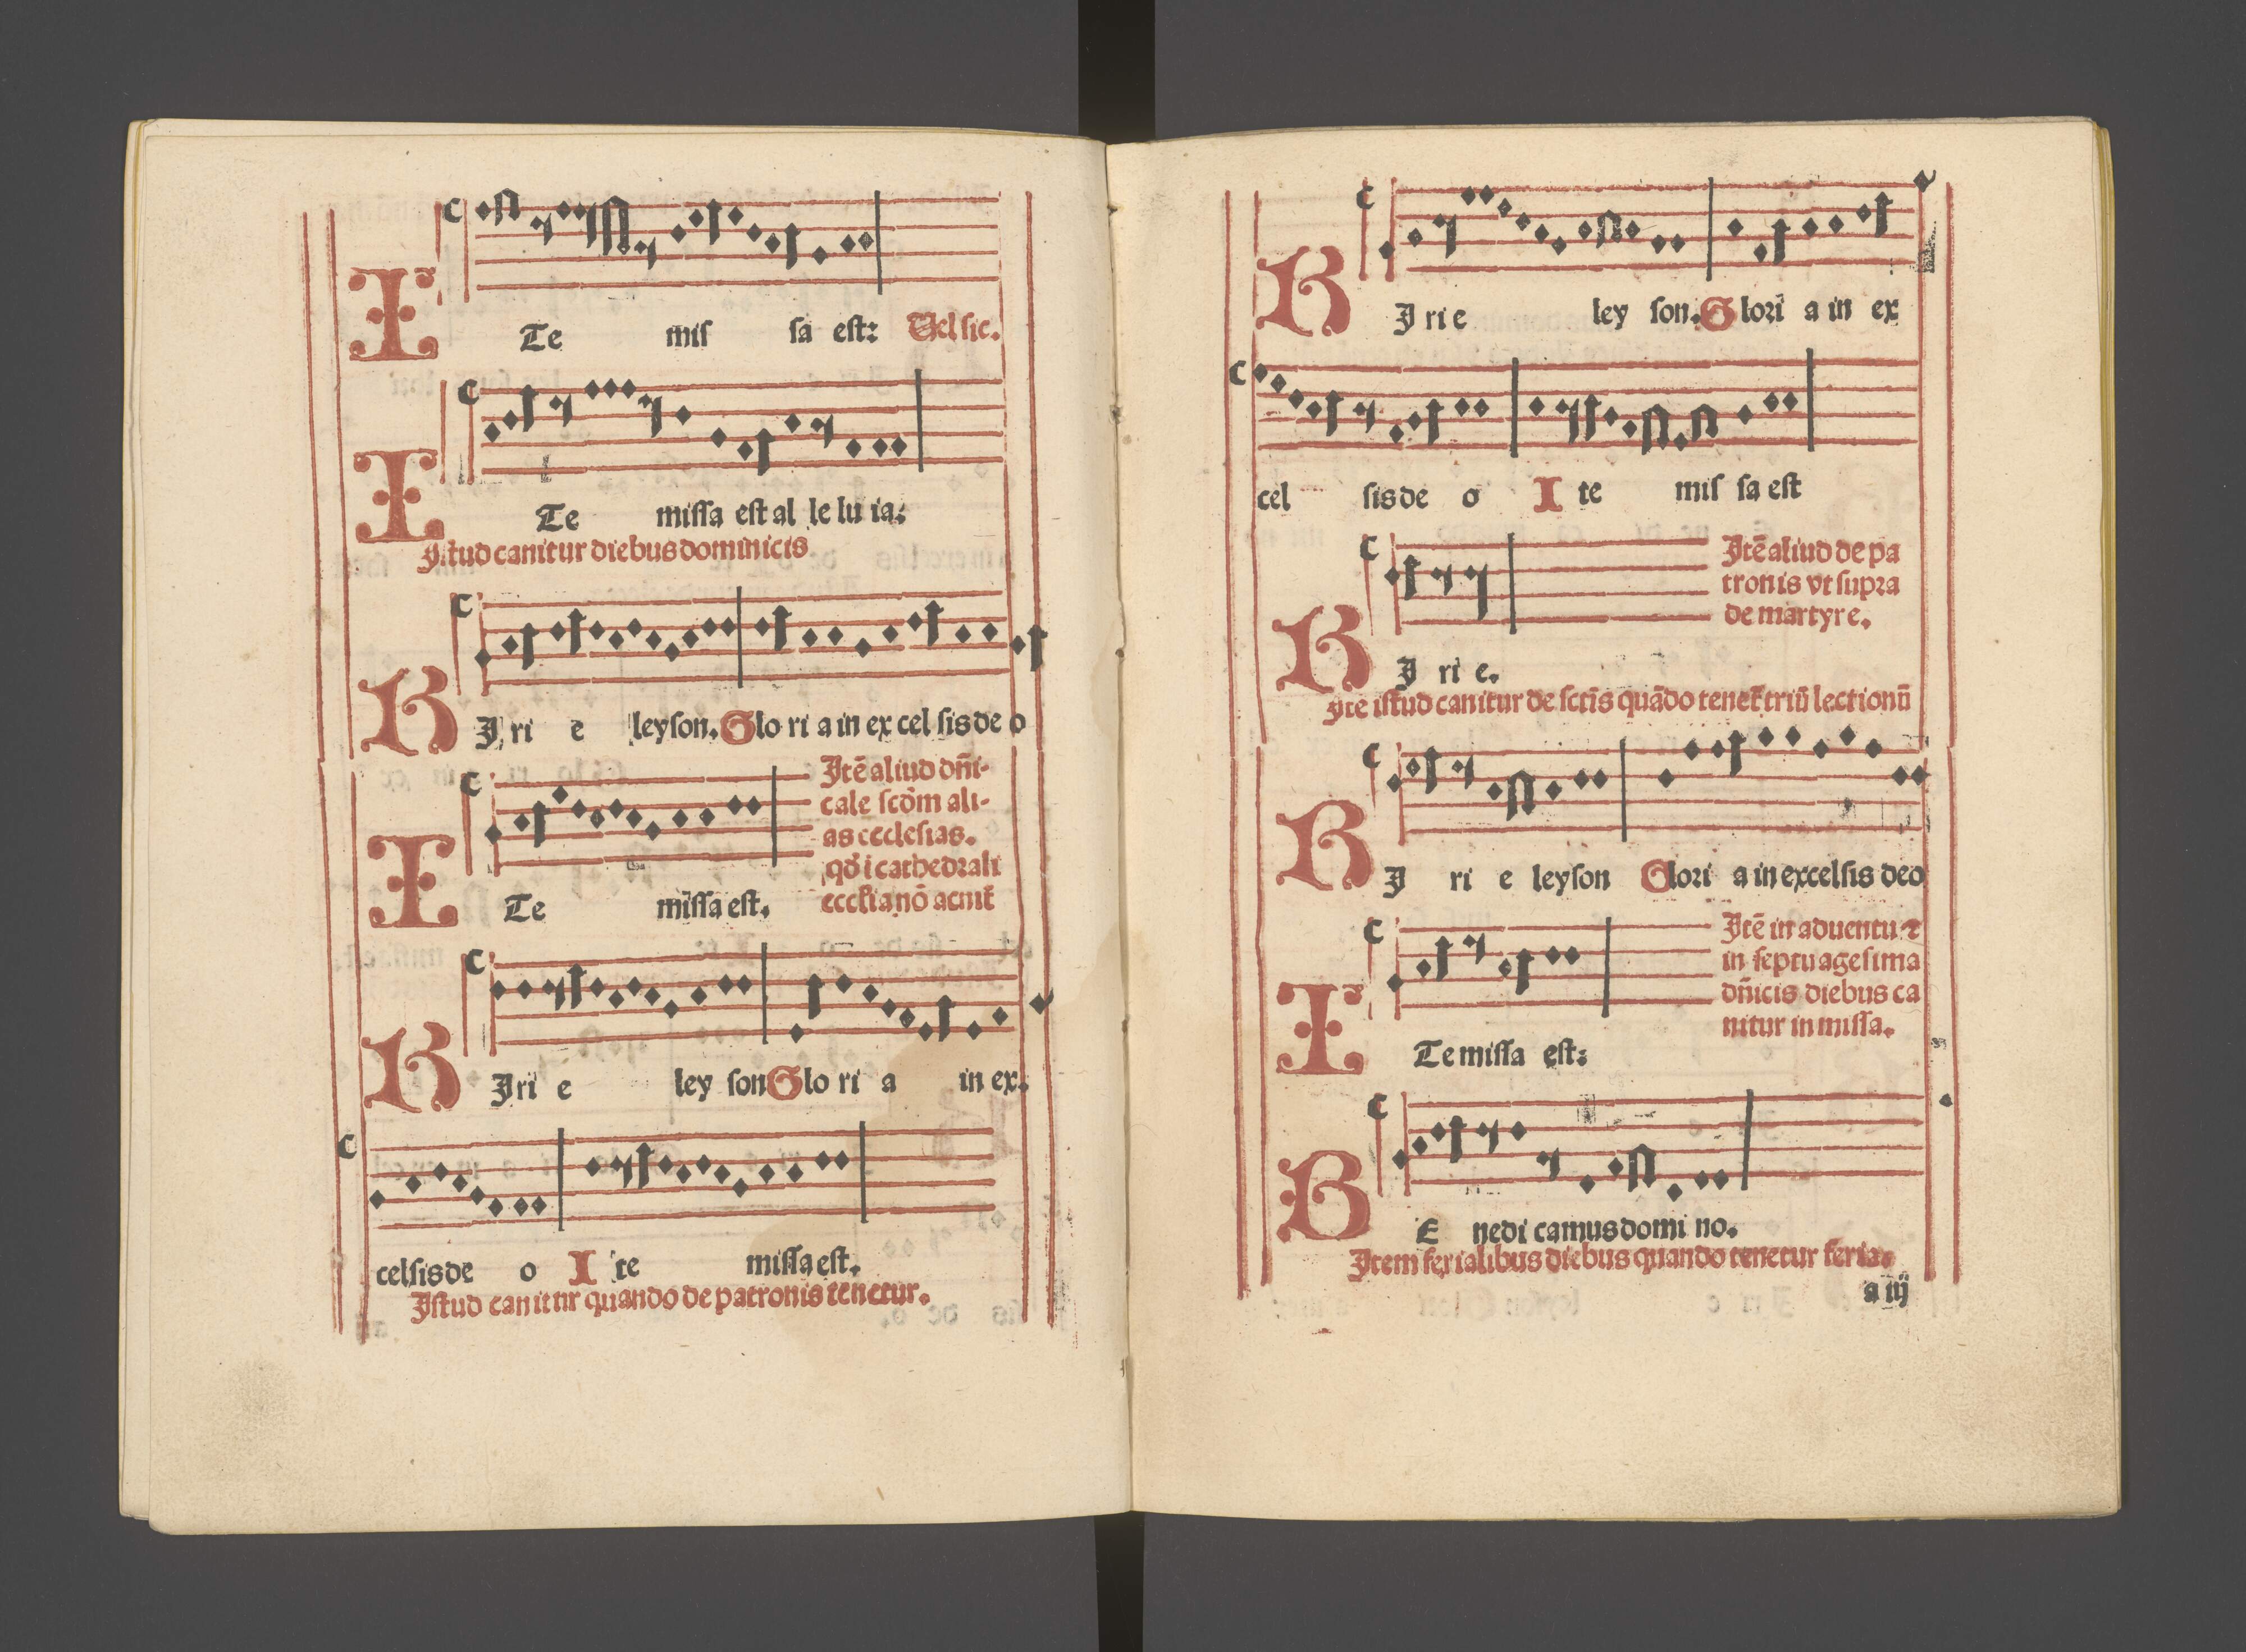 ITe miſ ſa eſt: Vel ſic.
ITe miſſa eſt al le lu ia:
Iſtud canitur diebus dominicis
KJ ri e leyſon. Glo ri a in ex cel ſis de o
Itē aliud dn̄i-
cale ſcd̄m ali-
as eccleſias.
ITe miſſa eſt.
KJri e ley ſon Glo ri a in ex.
celſis de o I te miſſa eſt.
Iſtud canitur quando de patronis tenetur.
KJ ri e ley ſon. Glori a in ex
cel ſis de o I te miſ ſa eſt
Itē aliud de pa
tronis vt ſupra
de martyre.
KJ ri e.
Ite iſtud canitur de ſctīs quādo tenet᷑ triū lectionū
KJ ri e leyſon Glori a in excelſis deo
Itē in aduentu ⁊
in ſeptuageſima
dn̄icis diebus ca
nitur in miſſa.
ITe miſſa eſt:
BE nedi camus domi no.
Item ferialibus diebus quando tenetur feria.
a iij